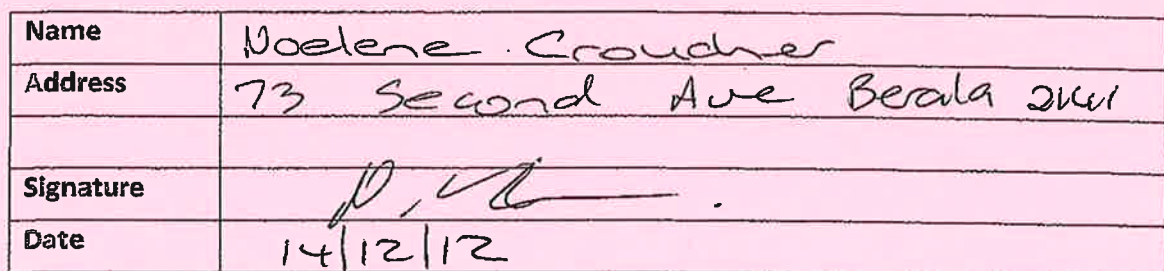 Name Noelene Croucher
Address 73 Second Ave Berala 2141
Signature
Date 14/12/12